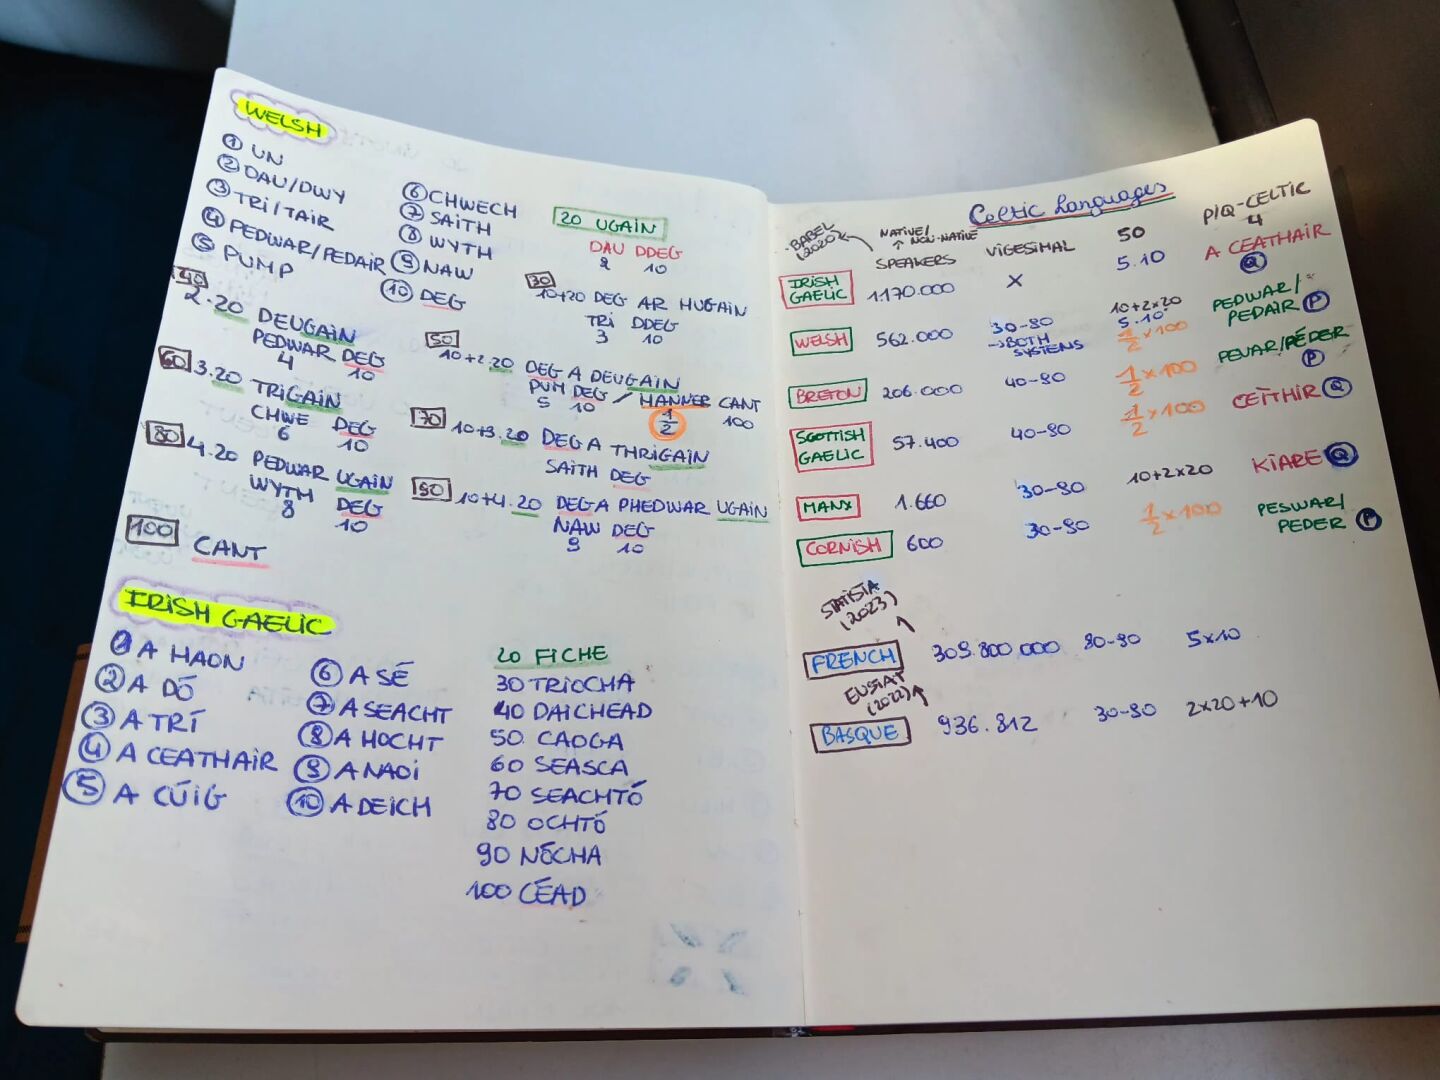 WELSH
① UN
② DAU/DWY
③ TRI/TAIR
④ PEDWAR/PEDAIR
⑤ PUMP
⑥ CHWECH
⑦ SAITH
⑧ WYTH
⑨ NAW
⑩ DEG
20 UGAIN
DAU DDEG
2 10
30
10+20 DEG AR HUGAIN
TRI DDEG
3 10
40
2.20 DEUGAIN
PEDWAR DEG
4 10
50
10+2.20 DEG A DEUGAIN
PUM DEG / HANNER CANT
5 10 1/2 100
60 3.20 TRIGAIN
CHWE DEG
6 10
70 10+3.20 DEG A THRIGAIN
SAITH DEG
80 4.20 PEDWAR UGAIN
WYTH DEG
8 10
90 10+4.20 DEG A PHEDWAR UGAIN
NAW DEG
9 10
100 CANT
IRISH GAELIC
① A HAON
② A DÓ
③ A TRÍ
④ A CEATHAIR
⑤ A CÚIG
⑥ A SÉ
⑦ A SEACHT
⑧ A HOCHT
⑨ A NAOI
⑩ A DEICH
20 FICHE
30 TRIOCHA
40 DAICHEAD
50 CAOGA
60 SEASCA
70 SEACHTÓ
80 OCHTÓ
90 NÓCHA
100 CÉAD
Celtic Languages
BABEL (2020)
NATIVE/ NON-NATIVE SPEAKERS VIGESIMAL 50 P/Q-CELTIC 4
IRISH GAELIC 1.170.000 X 5.10 A CEATHAIR Q
WELSH 562.000 30-90 → BOTH SYSTEMS 10+2x20 5.10 1/2 x 100 PEDWAR/ PEDAIR P
BRETON 206.000 40-90 1/2 x 100 PEVAR/PÉDER P
SCOTTISH GAELIC 57.400 40-90 1/2 x 100 CEITHIR Q
MANX 1.660 30-90 10+2x20 KIARE Q
CORNISH 600 30-90 1/2 x 100 PESWAR/ PEDER P
STATISTA (2023)
FRENCH 309.800.000 80-90 5x10
EUSTAT (2022)
BASQUE 936.812 30-90 2x20+10